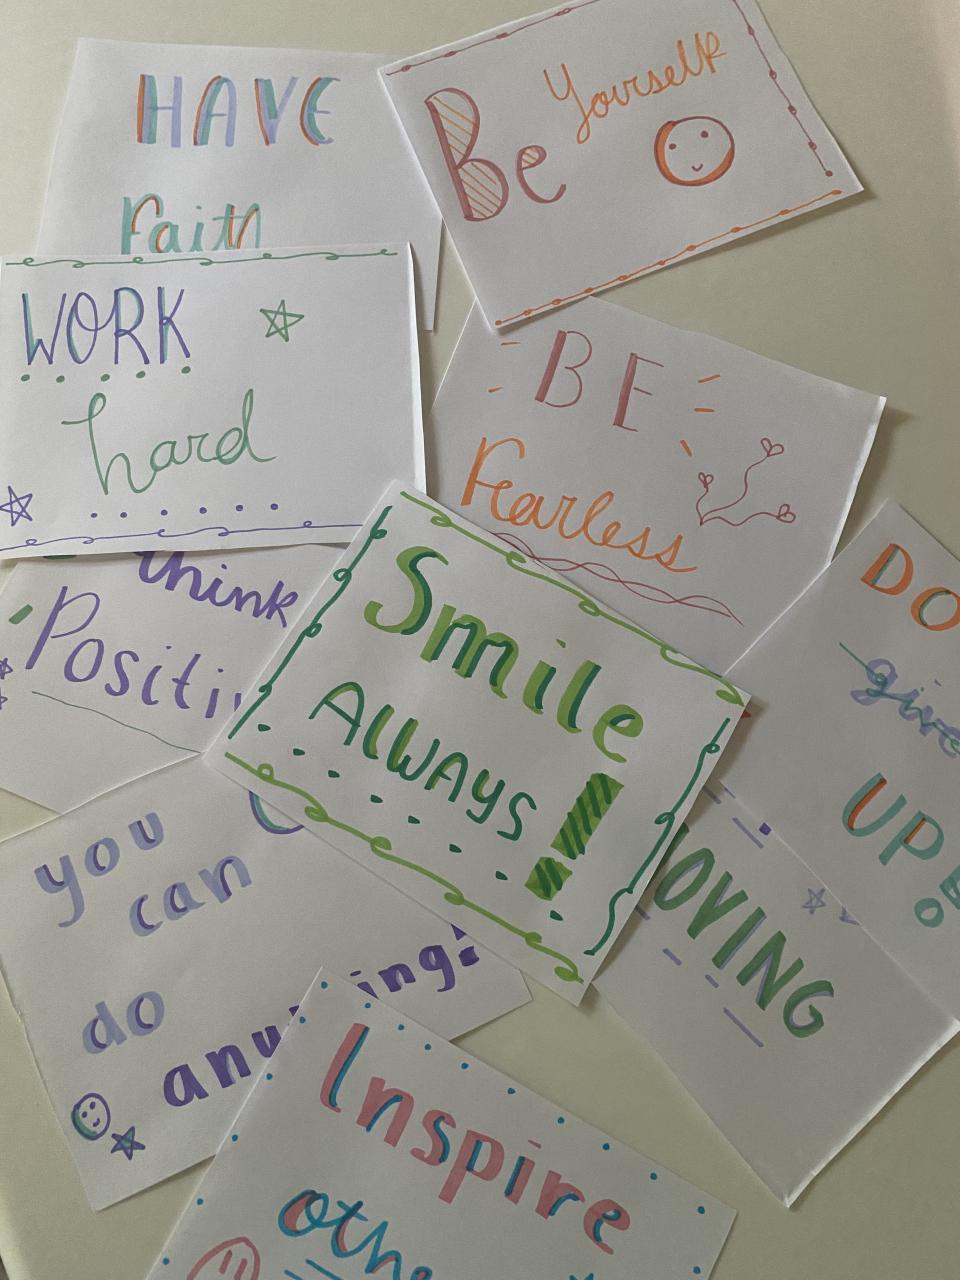 HAVE
Faith
Be Yourself
WORK
hard
BE
Fearless
think
Positi
Smile
ALWAYS!
DO
give
UP!
you
can
do
OVING
Inspire